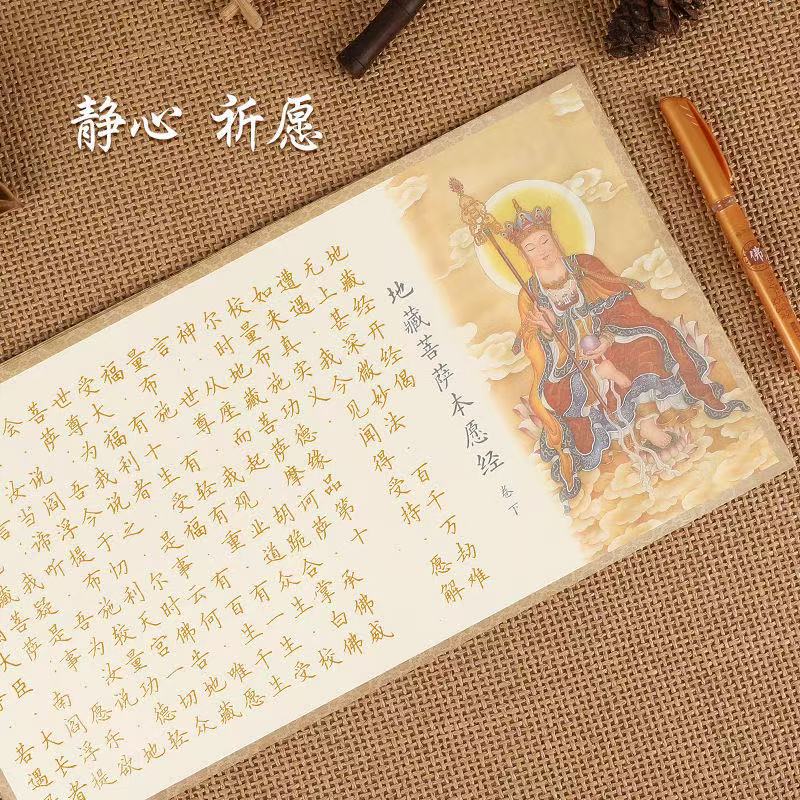 静心 祈愿
地藏菩萨本愿经 卷下
地藏经开经偈
无上甚深微妙法·百千万劫难
遭遇·我今见闻得受持·愿解
如来真实义
校量布施功德缘品第十
尔时地藏菩萨摩诃萨承佛威
神·从座而起·胡跪合掌白佛
言·世尊·我观业道众生·校
量布施·有轻有重·有一生受
福·有十生受福·有百生千生
受大福利者·是事云何·唯愿
世尊·为我说之·尔时佛告地藏
菩萨·吾今于忉利天宫一切众
会说阎浮提布施校量功德轻
汝当谛听·吾为汝说·地
言·我疑是事·愿乐欲
藏菩萨·南阎浮提
大臣·大长者
若遇
佛